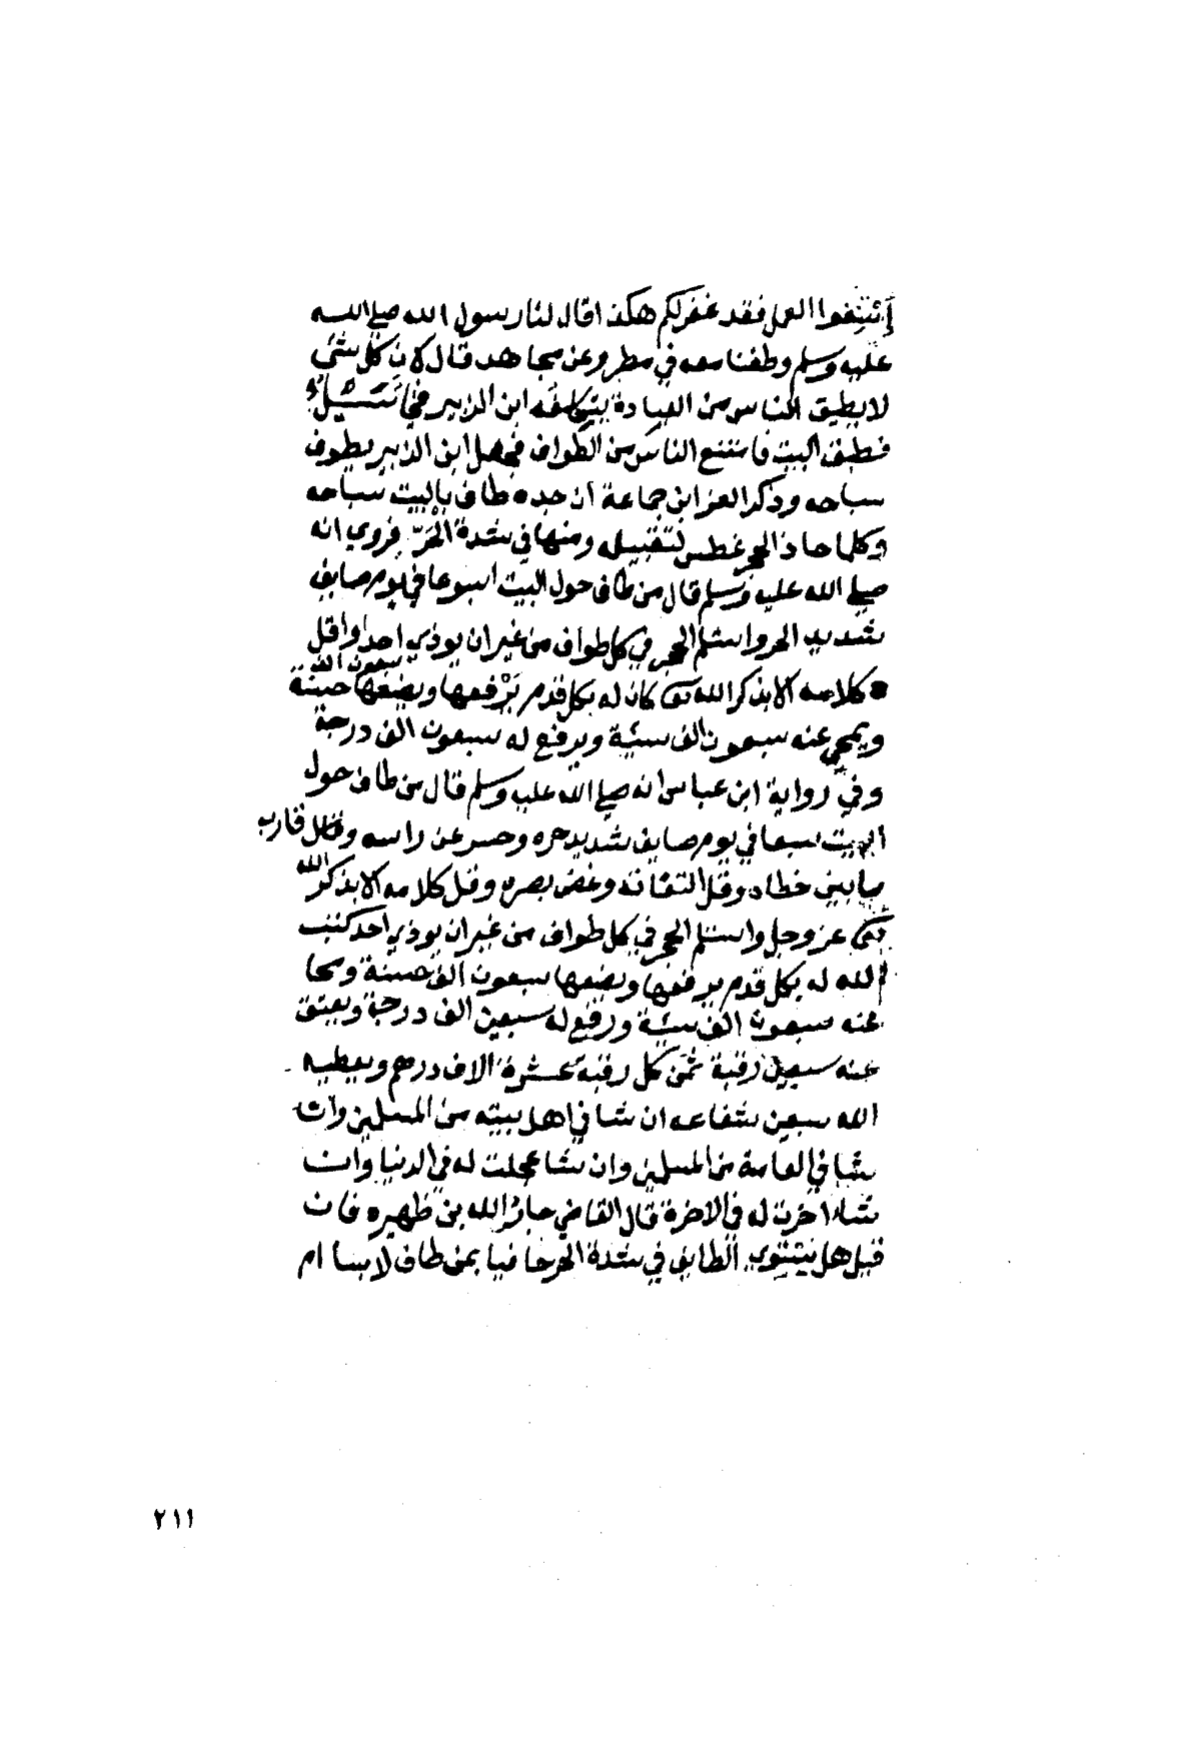 إئتنفوا العمل فقد غفر لكم هكذا قال لنا رسول الله صلي الله
عليه وسلم وطفنا معه في مطر وعن مجاهد قال كان كل شئ
لا يطيق الناس من العبادة يتكلفه ابن الزبير فجآ سَيْلٌ
فطبق البيت فامتنع الناس من الطواف فجعل ابن الزبير يطوف
سباحه وذكر العز ابن جماعة ان جده طاف بالبيت سباحه
وكلما حاذ الحجر غطس لتقبيله ومنها في شدة الحَرّ فروي انه
صلي الله عليه وسلم قال من طاف حول البيت اسبوعا في يوم صايف
شديد الحر واستلم الحجر في كل طواف من غير ان يوذي احدا واقل
كلامه الا بذكر الله تعى كان له بكل قدم يَرْفعها ويضعها سبعون الف حسنة
ويمحي عنه سبعون الف سيئة ويرفع له سبعون الف درجة
وفي رواية ابن عباس انه صلي الله عليه وسلم قال من طاف حول
البيت سبعا في يوم صايف شديد حره وحسر عن راسه وقارب
ما بين خطاه وقل التفاته وغض بصره وقل كلامه الا بذكر الله
تعى عز وجل واستلم الحجر في كل طواف من غير ان يوذي احد كتب
الله له بكل قدم يرفعها ويضعها سبعون الف حسنة ومحا
عنه سبعون الف سيئة ورفع له سبعين الف درجة ويعتق
عنه سبعين رقبة ثمن كل رقبة عشرة الاف درهم ويعطيه
الله سبعين شفاعه ان شا في اهل بيته من المسلمين وان
شا في العامة من المسلمين وان شا عجلت له في الدنيا وان
شا اخرت له في الاخرة قال القاضي جار الله بن ظهيره فان
قيل هل يستوي الطايف في شدة الحر حافيا بمن طاف لابسا ام
٢١١